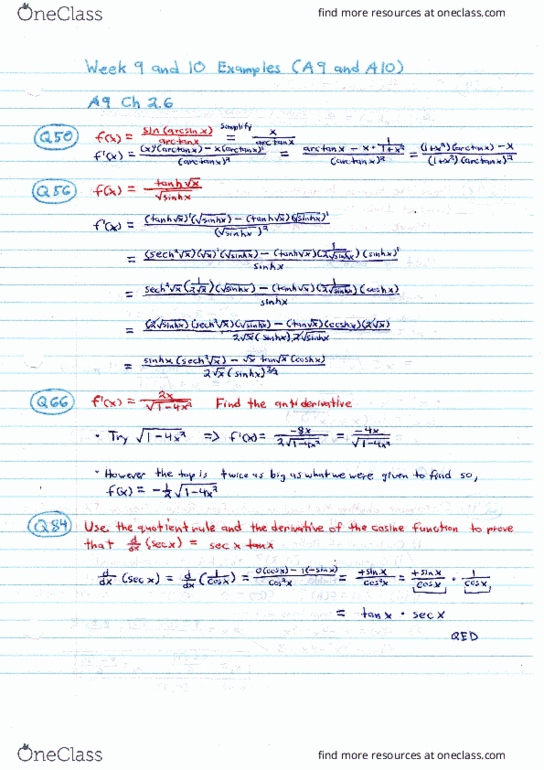 OneClass
find more resources at oneclass.com
Week 9 and 10 Examples (A9 and A10)
A9 Ch 2.6
Q50 f(x) = sin(arcsin x)/arctan x = simplify x/arctan x
f'(x) = ((x)'(arctan x) - x(arctan x)')/(arctan x)² = (arctan x - x · 1/(1+x²))/(arctan x)² = ((1+x²)(arctan x) - x)/((1+x²)(arctan x)²)
Q56 f(x) = tanh√x/√sinhx
f'(x) = ((tanh√x)'(√sinhx) - (tanh√x)(√sinhx)')/(√sinhx)²
= ((sech²√x)(√x)'(√sinhx) - (tanh√x)(1/(2√sinhx))(sinhx)')/sinhx
= (sech²√x(1/(2√x))(√sinhx) - (tanh√x)(1/(2√sinhx))(coshx))/sinhx
= ((2√sinhx)(sech²√x)(√sinhx) - (tan√x)(coshx)(2√x))/(2√x(sinhx)2√sinhx)
= (sinhx(sech²√x) - √x tan√x(coshx))/(2√x(sinhx)^(3/2))
Q66 f'(x) = 2x/√(1-4x²) Find the antiderivative
• Try √(1-4x²) => f'(x) = -8x/(2√(1-4x²)) = -4x/√(1-4x²)
• However the top is twice as big as what we were given to find so,
f(x) = -½√(1-4x²)
Q84 Use the quotient rule and the derivative of the cosine function to prove
that d/dx (sec x) = sec x tan x
d/dx (sec x) = d/dx (1/cos x) = (0(cos x) - 1(-sin x))/cos²x = +sin x/cos²x = +sin x/cos x · 1/cos x
= tan x · sec x
QED
OneClass
find more resources at oneclass.com